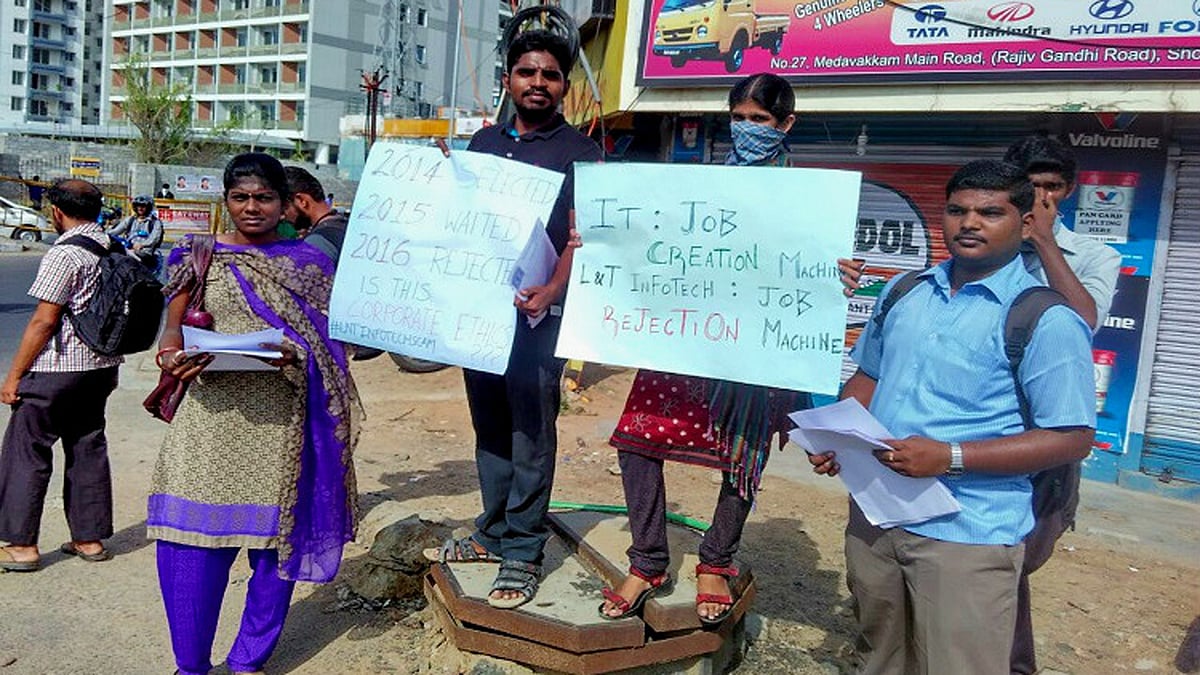 Genuin
4 Wheelers
TATA Mahindra HYUNDAI FO
No.27, Medavakkam Main Road, (Rajiv Gandhi Road), Sho
2014 SELECTED
2015 WAITED
2016 REJECTE
IS THIS
CORPORATE ETHICS
???
#LNTINFOTECHSCAM
IT : JOB
CREATION MACHIN
L&T INFOTECH : JOB
REJECTION MACHINE
DOL
Valvoline
PAN CARD
APPLYING
HERE
ine